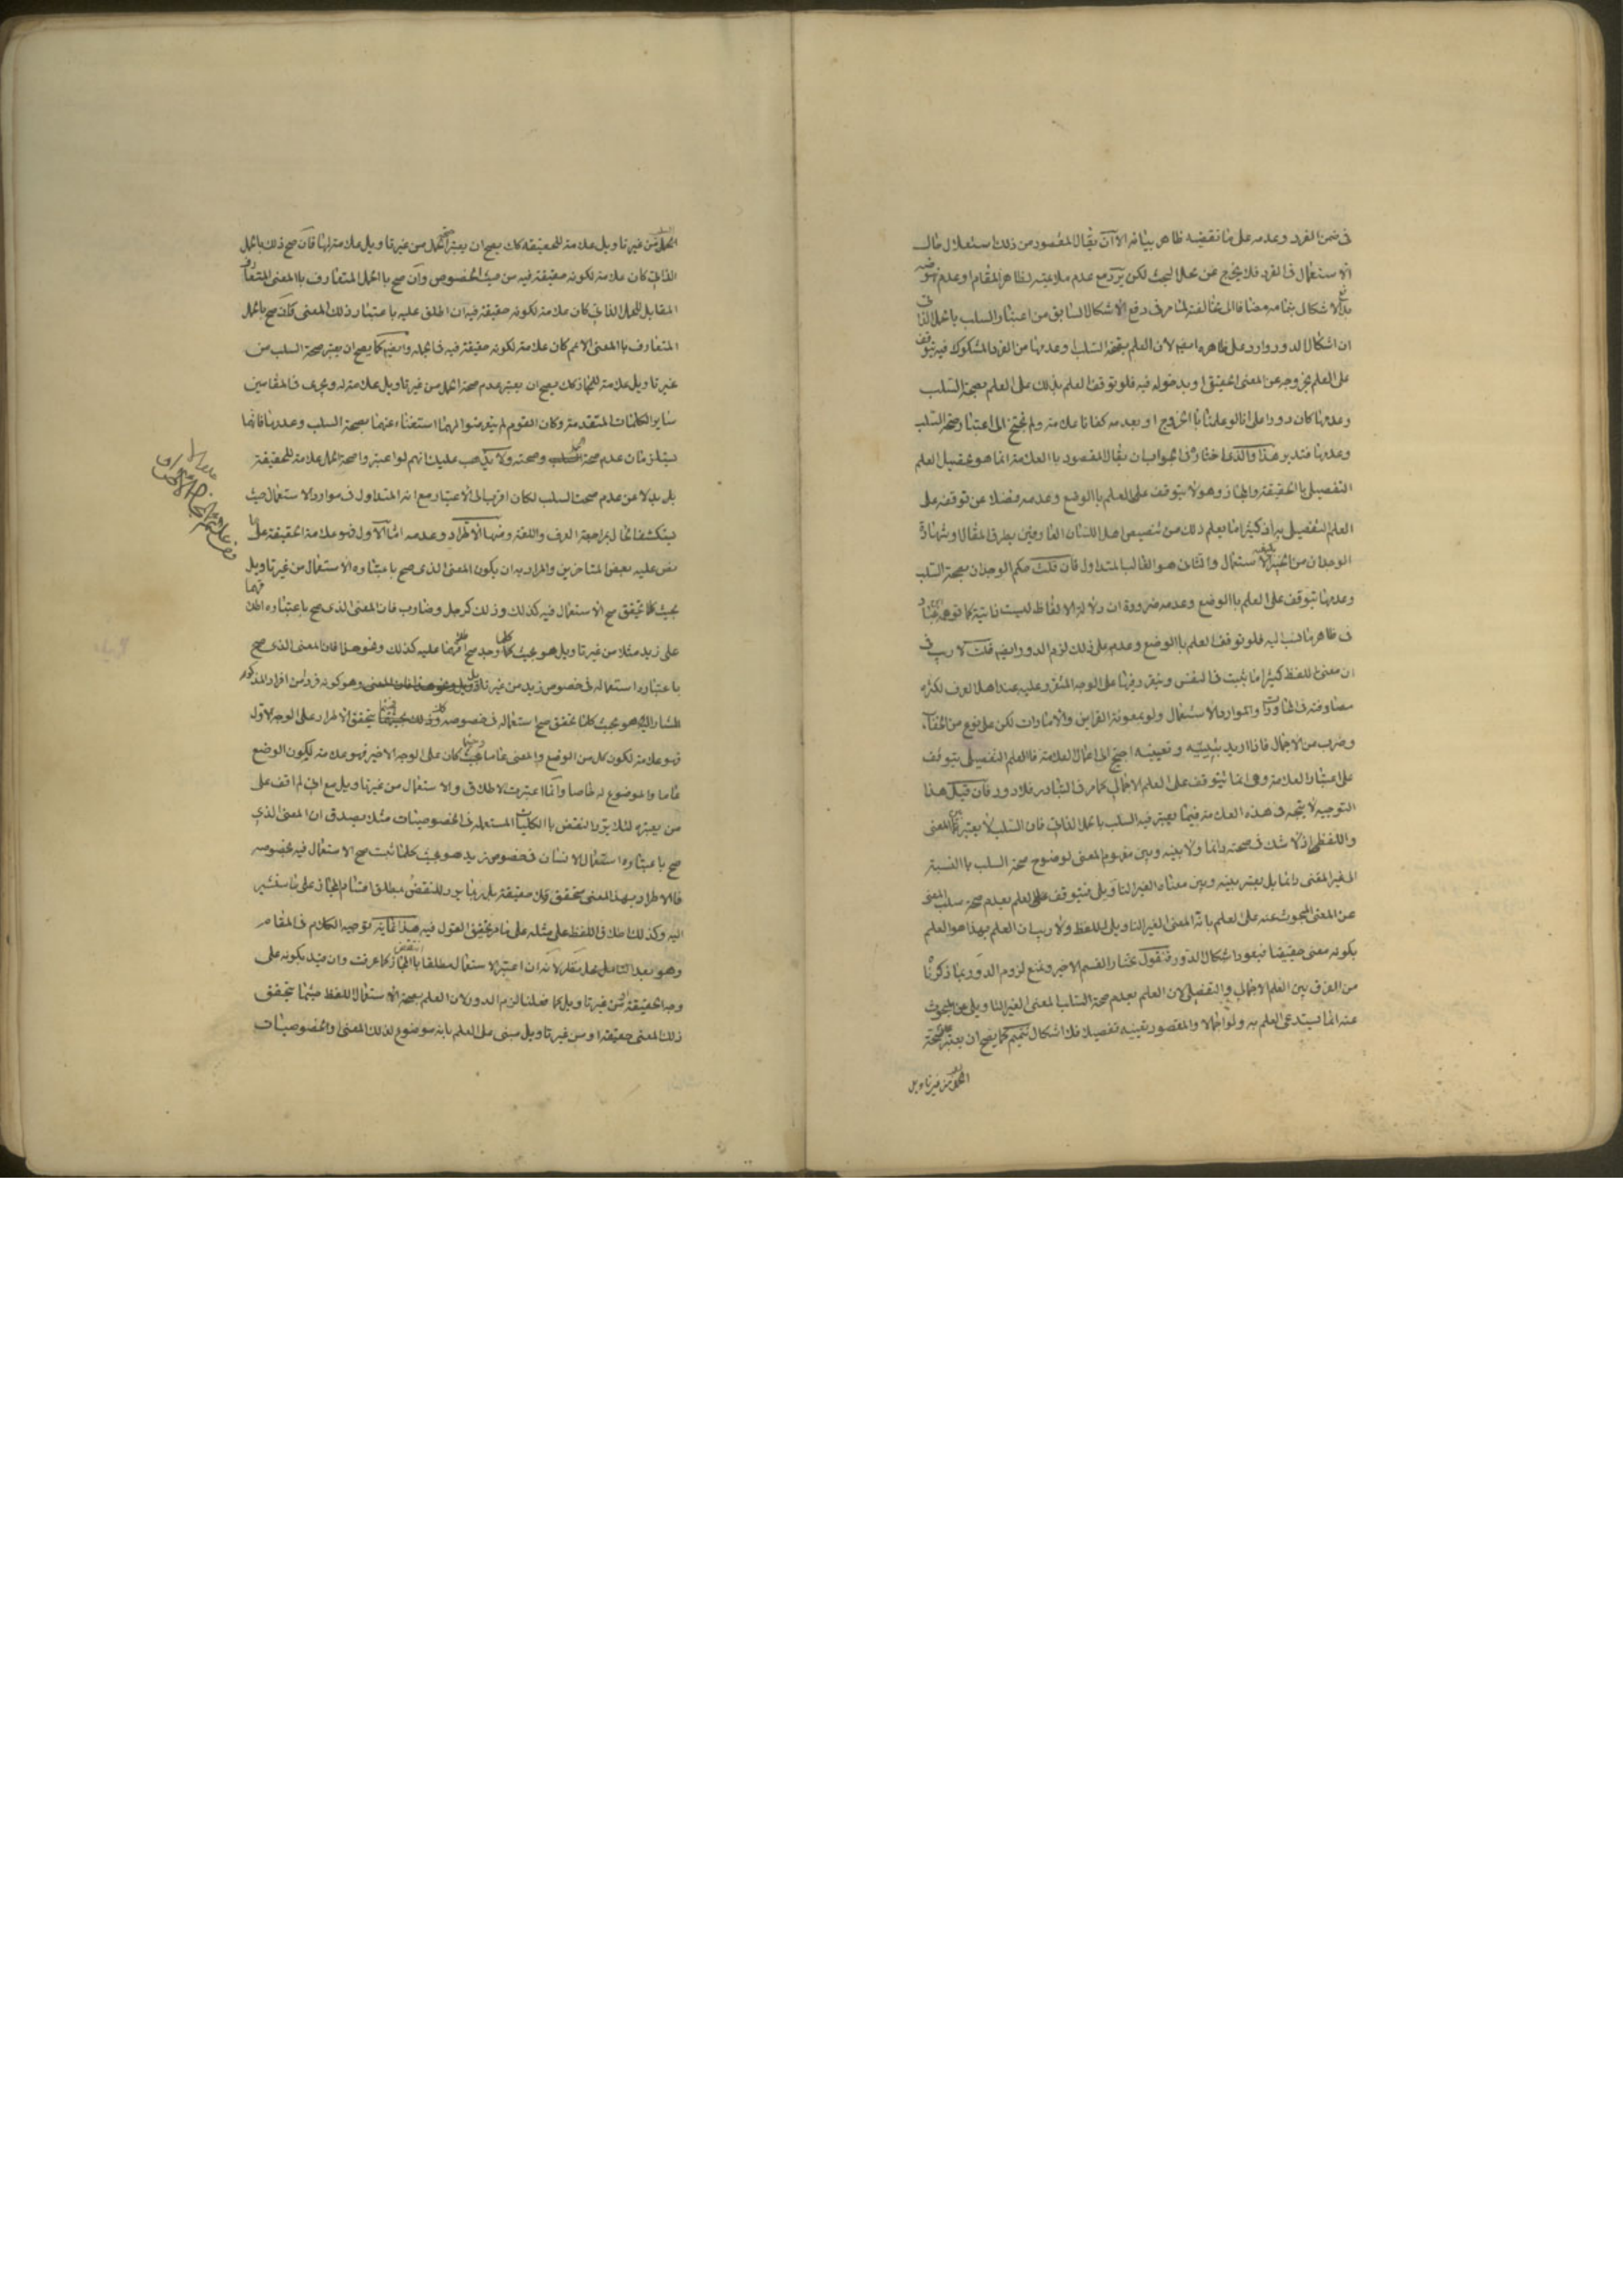 في ضمن الفرد وعدمه على ما نقضيه ظاهر بيانه الا ان يقال المقصود من ذلك استعلام حال
الاستعمال في الفرد فلا يخرج عن محل البحث لكن يرد مع عدم ملائمته لظاهر المقام وعدم نهوضه
بدفع الاشكال بتمامه مضافا الى مخالفته لما مر في دفع الاشكال السابق من اعتبار السلب باعتبار الحمل الذاتي
ان اشكال الدور وارد على ظاهره ايضا لان العلم بصحة السلب وعدمها من الفرد المشكوك فيه يتوقف
على العلم بخروجه عن المعنى الحقيقي او بدخوله فيه فلو توقف العلم بذلك على العلم بصحة السلب
وعدمها كان دورا على انا لو علمنا بالخروج او بعدمه كفانا علامة ولم نحتج الى اعتبار صحة السلب
وعدمها فتدبر هذا والذي اختاره في الجواب ان يقال المقصود بالعلامة انما هو تحصيل العلم
التفصيلي بالحقيقة والمجاز وهو لا يتوقف على العلم بالوضع وعدمه فضلا عن توقفه على
العلم التفصيلي به اذ كثيرا ما يعلم ذلك من تنصيص اهل اللسان العارفين بطرق المقال او شهادة
الوجدان من الاستعمال والثاني هو الغالب المتداول فان قلت حكم الوجدان بصحة السلب
وعدمها يتوقف على العلم بالوضع وعدمه ضرورة ان دلالة الالفاظ ليست ذاتية كما توهمه عباد
في ظاهر ما نسب اليه فلو توقف العلم بالوضع وعدمه على ذلك لزم الدور ايضا قلت لا ريب في
ان معنى اللفظ كثيرا ما يثبت في النفس ويتقرر فيها على الوجه المقرر عليه عند اهل العرف لكثرة
مصادفته في المحاورات والموارد الاستعمال ولو بمعونة القراين والامارات لكن على نوع من الخفاء
وضرب من الاجمال فاذا اريد تبيينه وتعيينه احتيج الى اعمال العلامة فالعلم التفصيلي يتوقف
على اعتبار العلامة وهي انما يتوقف على العلم الاجمالي كما مر في التبادر فلا دور فان قيل هذا
التوجيه لا يتجه في هذه العلامة فيما يعتبر فيه السلب باعتبار الحمل الذاتي فان السلب لا يعتبر بين المعنى
واللفظ اذ لا شك في صحته دائما ولا بينه وبين مفهوم المعنى لوضوح صحة السلب بالنسبة
الى غير المعنى دائما بل يعتبر بينه وبين معناه الغير التاويلي فيتوقف العلم بعدم صحة سلب المعنى
عن المعنى المبحوث عنه على العلم بانه المعنى الغير التاويلي للفظ ولا ريب ان العلم بهذا هو العلم
بكونه معنى حقيقيا فيعود اشكال الدور فنقول نختار القسم الاخير ونمنع لزوم الدور بما ذكرنا
من الفرق بين العلم الاجمالي والتفصيلي لان العلم بعدم صحة السلب المعنى الغير التاويلي عن المبحوث
عنه انما يستدعي العلم به ولو اجمالا والمقصود تعيينه تفصيلا فلا اشكال تتميم كما يصح ان يعتبر عدم صحة
السلب من غير تاويل
من غير تاويل علامة للحقيقة كك يصح ان يعتبر صحة الحمل من غير تاويل علامة لها فان صح ذلك بالحمل
الذاتي كان علامة لكونه حقيقة فيه من حيث الخصوص وان صح بالحمل المتعارف بالمعنى المتعارف
المقابل للحمل الذاتي كان علامة لكونه حقيقة فيه ان اطلق عليه باعتبار ذلك المعنى وان صح بالحمل
المتعارف بالمعنى الاعم كان علامة لكونه حقيقة فيه في الجملة وايضا كما يصح ان يعتبر صحة السلب من
غير تاويل علامة للمجاز كك يصح ان يعتبر عدم صحة الحمل من غير تاويل علامة له ويجرى في المقامين
ساير الكلمات المتقدمة وكان القوم لم يتعرضوا لهما استغناء عنهما بصحة السلب وعدمها فانهما
يستلزمان عدم صحة الحمل وصحته ولا يذهب عليك انهم لو اعتبروا صحة الحمل علامة للحقيقة
بل بدلا عن عدم صحت السلب لكان اقرب الى الاعتبار مع انه المتداول في موارد الاستعمال حيث
يستكشف الحال بمراجعة العرف واللغة ومنها الاطراد وعدمه اما الاول فهو علامة الحقيقة على ما
نص عليه بعض المتاخرين والمراد به ان يكون المعنى الذي صح باعتباره الاستعمال من غير تاويل
بحيث كلما تحقق صح الاستعمال فيه كذلك وذلك كرجل وضارب فان المعنى الذي صح باعتباره اطلاقهما
على زيد مثلا من غير تاويل هو بحيث كلما وجد صح اطلاقهما عليه كذلك ونحو هذا فان المعنى الذي صح
باعتباره استعماله في خصوص زيد من غير تاويل وهو كونه فردا من افراد المذكور
المشار اليه هو بحيث كلما تحقق صح استعماله في خصوصه كذلك فحيثما يتحقق الاطراد على الوجه الاول
فهو علامة لكون كل من الوضع والمعنى عاما وحيثما كان على الوجه الاخير فهو علامة لكون الوضع
عاما والموضوع له خاصا وانما اعتبرت الاطلاق والاستعمال من غير تاويل مع اني لم اقف على
من يعتبره لئلا يرد النقض بالكليات المستعملة في الخصوصيات مثلا يصدق ان المعنى الذي
صح باعتباره استعمال الانسان في خصوص زيد هو بحيث كلما ثبت صح الاستعمال فيه بخصوصه
فالاطراد بهذا المعنى متحقق ولا حقيقة بل ربما يورد النقض بمطلق اقسام المجاز على ما سنشير
اليه وكذلك اطلاق اللفظ على مثله على ما مر تحقيق القول فيه هذا غاية توجيه الكلام في المقام
وهو بعد التامل محل نظر لانه ان اعتبر الاستعمال مطلقا انتقض بالمجاز كما عرفت وان قيد بكونه على
وجه الحقيقة او من غير تاويل كما فعلنا لزم الدور لان العلم بصحة الاستعمال اللفظ حيثما يتحقق
ذلك المعنى حقيقة او من غير تاويل مبنى على العلم بانه موضوع لذلك المعنى او الخصوصيات